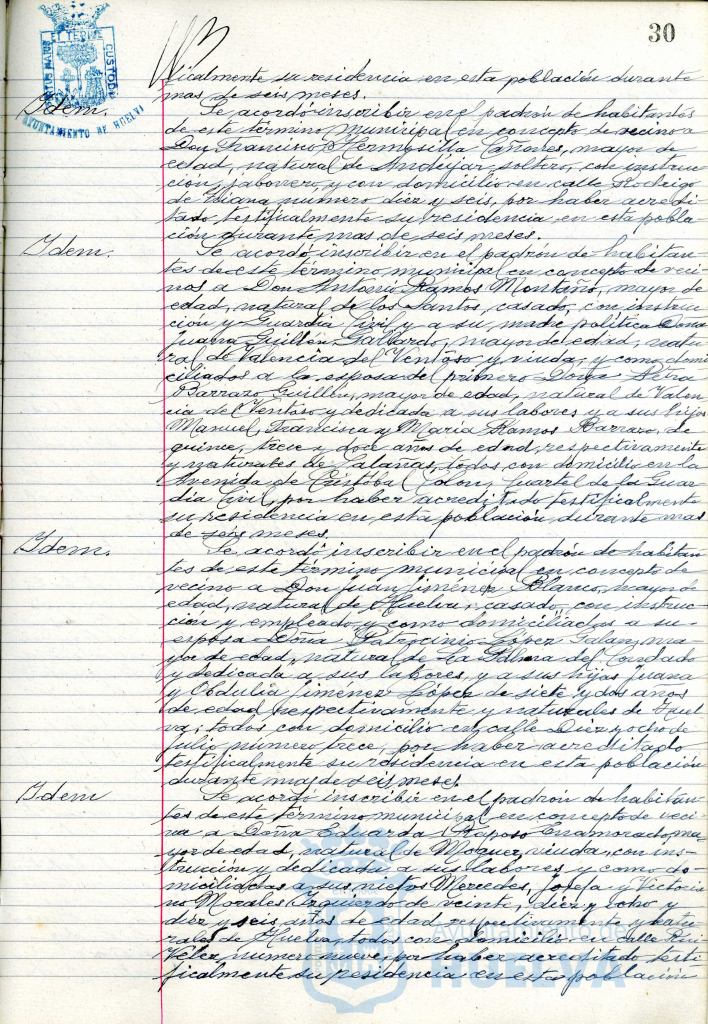 30
ticalmente su residencia en esta población durante
mas de seis meses.
Idem. Se acordó inscribir en el padrón de habitantes
de este término municipal en concepto de vecino a
Don Francisco Hermosilla, mayor de
edad, natural de Andújar, soltero, con instruc-
cion, jabonero, y con domicilio en calle Rodrigo
de Triana numero diez y seis, por haber acredi-
tado testificalmente su residencia en esta pobla-
ción durante mas de seis meses.
Idem. Se acordó inscribir en el padrón de habitan-
tes de este término municipal en concepto de veci-
nos a Don Antonio Ramos Montaño, mayor de
edad, natural de los Santos, casado, con instruc-
cion y Guardia Civil y a su madre política Doña
Juana Guillén Gallardo, mayor de edad, natu-
ral de Valencia del Ventoso y viuda; y como domi-
ciliados a la esposa del primero Doña
Barrazo Guillén, mayor de edad, natural de Valen-
cia del Ventoso y dedicada a sus labores y a sus hijos
Manuel, Francisca y María Ramos Barrazo, de
quince, trece y doce años de edad, respectivamente
y naturales de Calañas, todos con domicilio en la
Avenida de Cristóbal Colon, Cuartel de la Guar-
dia Civil, por haber acreditado testificalmente
su residencia en esta población, durante mas
de seis meses.
Idem. Se acordó inscribir en el padrón de habitan-
tes de este término municipal en concepto de
vecino a Don Juan Jiménez Blanco, mayor de
edad, natural de Huelva, casado, con instruc-
ción y empleado, y como domiciliados a su
esposa Doña Patrocinio López Galan, ma-
yor de edad, natural de La Palma del Condado
y dedicada a sus labores, y a sus hijas Juana
y Obdulia Jiménez López de siete y dos años
de edad respectivamente y naturales de Huel-
va; todos con domicilio en calle Diez y ocho de
Julio numero trece, por haber acreditado
testificalmente su residencia en esta población
durante mas de seis meses.
Idem Se acordó inscribir en el padrón de habitan-
tes de este término municipal en concepto de veci-
na a Doña Eduarda Raposo Enamorado, ma-
yor de edad, natural de Moguer, viuda, con ins-
trucción y dedicada a sus labores y como do-
miciliadas a sus nietos Mercedes, Josefa y Victoria-
no Morales Izquierdo de veinte, diez y ocho y
diez y seis años de edad respectivamente y natu-
rales de Huelva, todos con domicilio en calle Rui
Vélez numero nueve, por haber acreditado testi-
ficalmente su residencia en esta población
AYUNTAMIENTO DE HUELVA
Ayuntamiento de
HUELVA